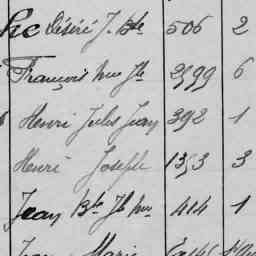 Désiré J. Bte 506 2
François Mie Jh 2599 6
Henri Jules Jean 392 1
Henri Joseph 1353 3
Jean Bte Jh Mie 414 1
Jean Marie